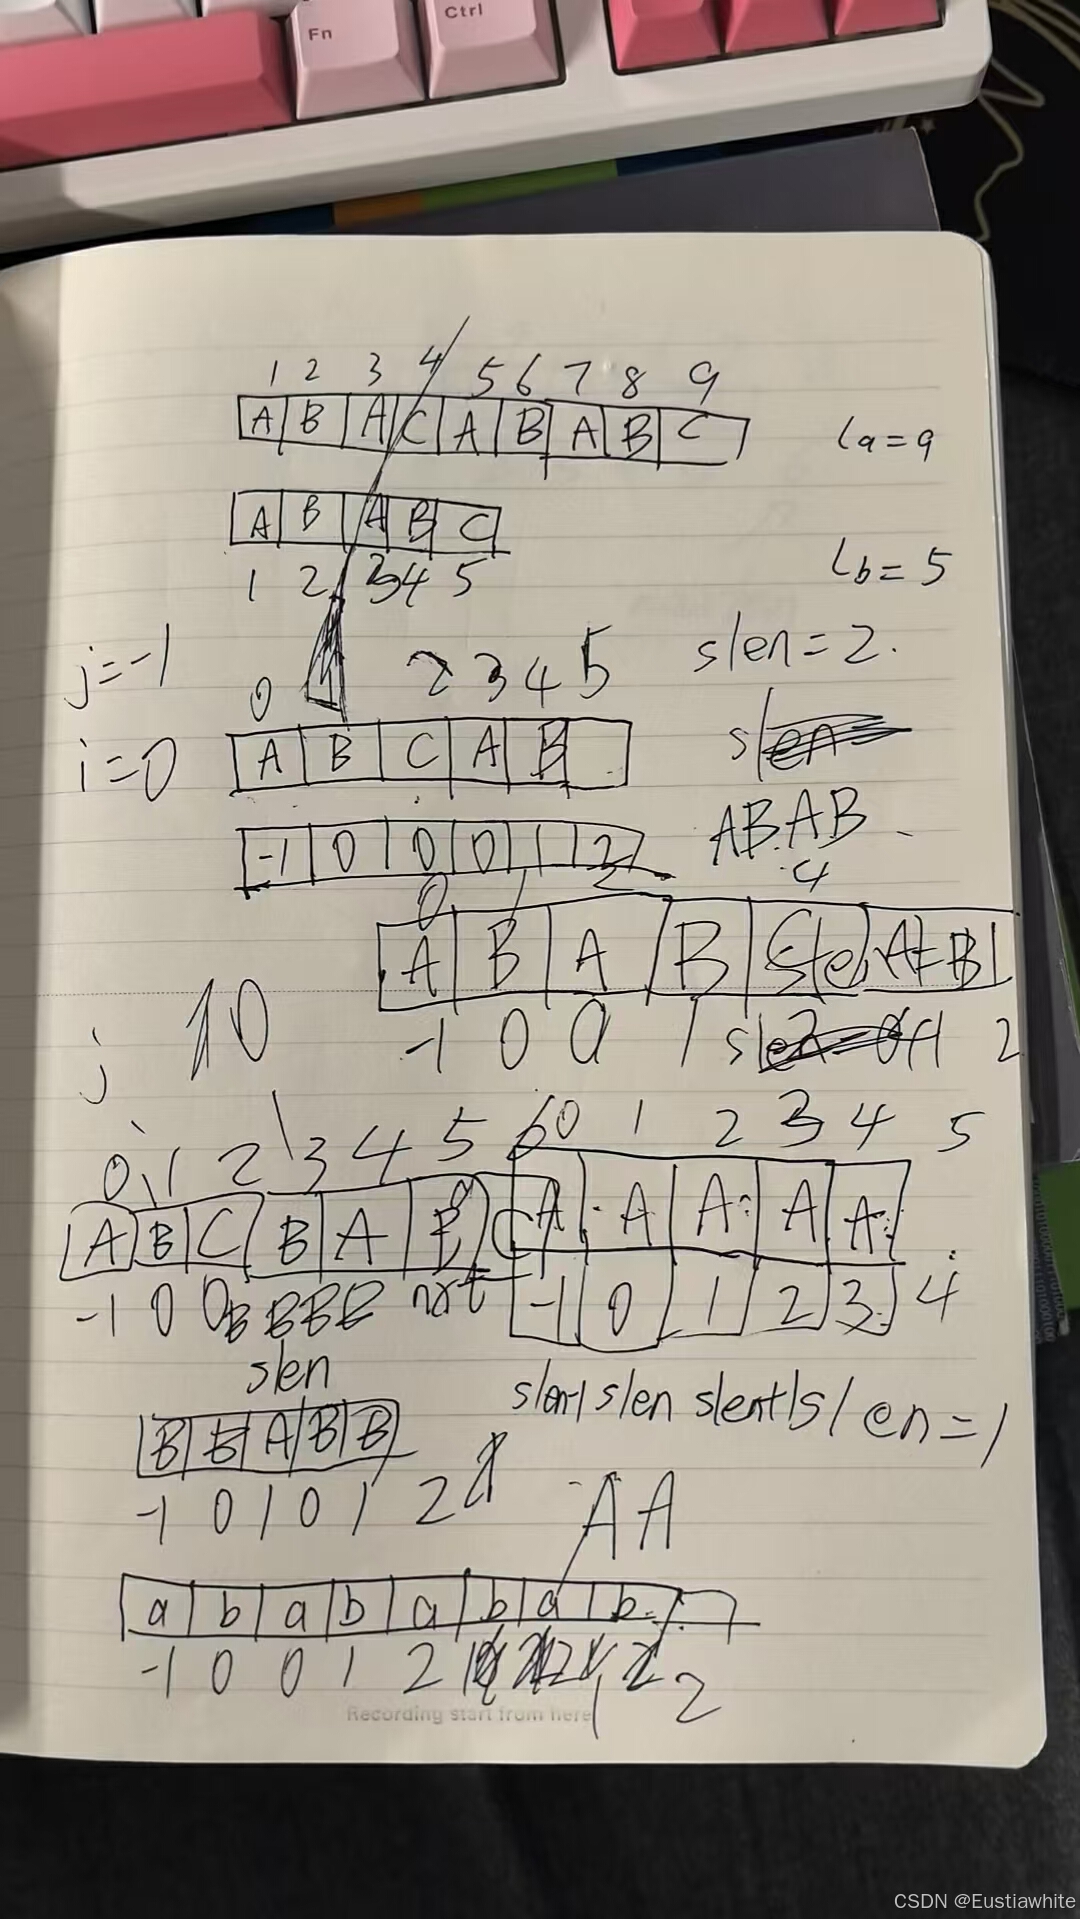 Fn
Ctrl
1 2 3 4 5 6 7 8 9
A B A C A B A B C
la=9
A B A B C
1 2 3 4 5
lb=5
j=-1
slen=2.
0 2 3 4 5
i=0
A B C A B
-1 0 0 0 1 2
ABAB
4
0 1 2
A B A B
-1 0 0 1
2
j 10
0 1 2 3 4 5 6
0 1 2 3 4 5
A B C B A
A A A A A
-1 0 0
nxt
-1 0 1 2 3 4
slen
slen-1 slen slen+1 slen=1
B B A B B
-1 0 1 0 1 2
AA
a b a b a b a b
-1 0 0 1 2
2
Recording start from here
CSDN @Eustiawhite